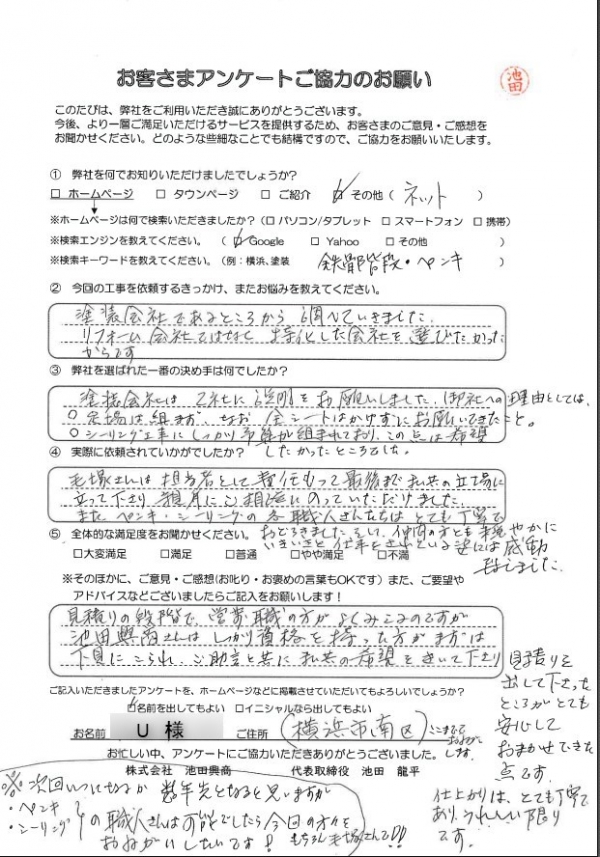 お客さまアンケートご協力のお願い
池田
このたびは、弊社をご利用いただき誠にありがとうございます。
今後、より一層ご満足いただけるサービスを提供するため、お客さまのご意見・ご感想を
お聞かせください。どのような些細なことでも結構ですので、ご協力をお願いいたします。
① 弊社を何でお知りいただけましたでしょうか?
□ ホームページ □ タウンページ □ ご紹介 ☑ その他 ( ネット )
※ホームページは何で検索いただきましたか? (□ パソコン/タブレット □ スマートフォン □ 携帯)
※検索エンジンを教えてください。 ( ☑ Google □ Yahoo □ その他 )
※検索キーワードを教えてください。(例:横浜、塗装 鉄部階段・ペンキ )
② 今回の工事を依頼するきっかけ、またお悩みを教えてください。
塗装会社であるところから調べていきました。
リフォーム会社ではなく 特化した会社を選びたかった
からです
③ 弊社を選ばれた一番の決め手は何でしたか?
塗装会社は2社に説明をお願いしました。御社への理由としては、
○足場は組まず、なお 全シートはかけずにお願いできたこと。
○シーリング工事にしっかり予算が組まれており、この点は希望
したかったところでした。
④ 実際に依頼されていかがでしたか?
毛塚さんは担当者として責任もって最後まで私共の立場に
立って下さり 親身にご相談にのっていただけました。
また ペンキ・シーリングの各職人さんたちは とても丁寧で
おどろきました。そして、仲間の方とも 穏やかに
いきいきと 仕事をされている姿には感動
致しました。
⑤ 全体的な満足度をお聞かせください。
□大変満足 □満足 □普通 □やや満足 □不満
※そのほかに、ご意見・ご感想(お叱り・お褒めの言葉もOKです)また、ご要望や
アドバイスなどございましたらご記入をお願いします!
見積りの段階で、営業職の方が よくみこみのですが
池田興商さんは しっかり資格を持った方が まずは
下見にこられ、ご助言と共に私共の希望をきいて下さり
見積りを
出して下さった
ところがとても
安心して
おまかせできた
点です。
仕上がりは、とても丁寧で
あり、うれしい限り
です。
ご記入いただきましたアンケートを、ホームページなどに掲載させていただいてもよろしいでしょうか?
□名前を出してもよい □イニシャルなら出してもよい
お名前 U 様 ご住所 (横浜市南区)
お忙しい中、アンケートにご協力いただきありがとうございました。
株式会社 池田興商 代表取締役 池田 龍平
※ 次回いつになるか 数年先となると思いますが
・ペンキ
・シーリング の職人さんは可能でしたら今回の方々を
おねがいしたいです! もちろん毛塚さんで!!